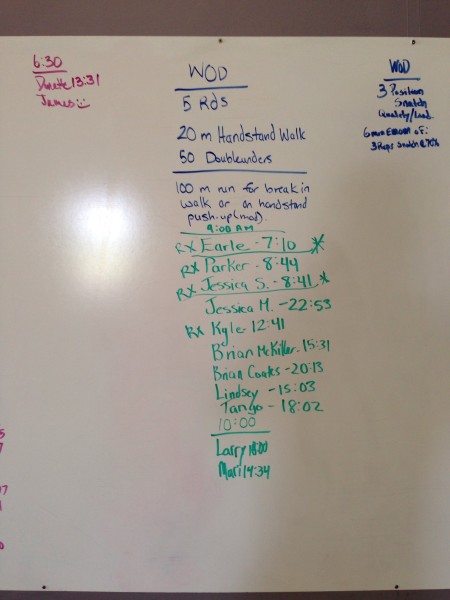 6:30
Danette 13:31
James
WOD
5 Rds
20 m Handstand Walk
50 Doubleunders
100 m run for break in
walk or on handstand
push-up (mod).
9:00 AM
RX Earle - 7:10 *
RX Parker - 8:44
RX Jessica S. - 8:41 *
Jessica M. - 22:53
RX Kyle 12:41
Brian McKiller. 15:31
Brian Coates - 20:13
Lindsey - 15:03
Tango - 18:02
10:00
Larry 18:00
Mari 14:34
WOD
3 Position
Snatch
Quality/Load.
6 min EMOM of:
3 Reps Snatch @ 70%